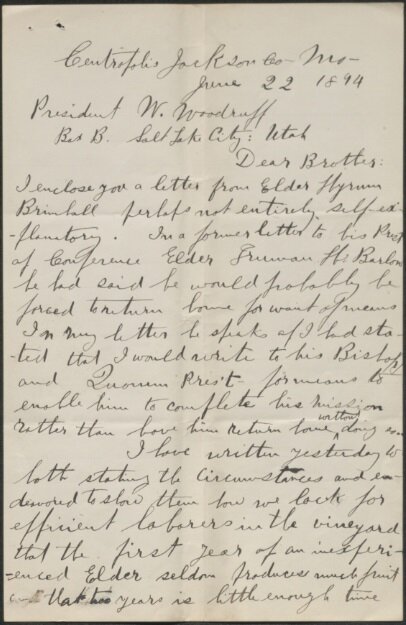 Centropolis Jackson Co- Mo-
June 22 1894
President W. Woodruff
Box B. Salt Lake City: Utah
Dear Brother:
I enclose you a letter from Elder Hyrum
Brimhall perhaps not entirely self-ex-
-planatory. In a former letter to his Prest
of Conference Elder Truman H. Barlow
he had said he would probably be
forced to return home for want of means
In my letter he speaks of I had sta-
-ted that I would write to his Bishop
and Quorum Pres't- for means to
enable him to complete his mission
rather than have him return home without doing so.
I have written yesterday to
both stating the circumstances and en-
devored to show them how we lack for
efficient laborers in the vineyard
that the first year of an inexperi-
-enced Elder seldom produces much fruit
and that two years is little enough time